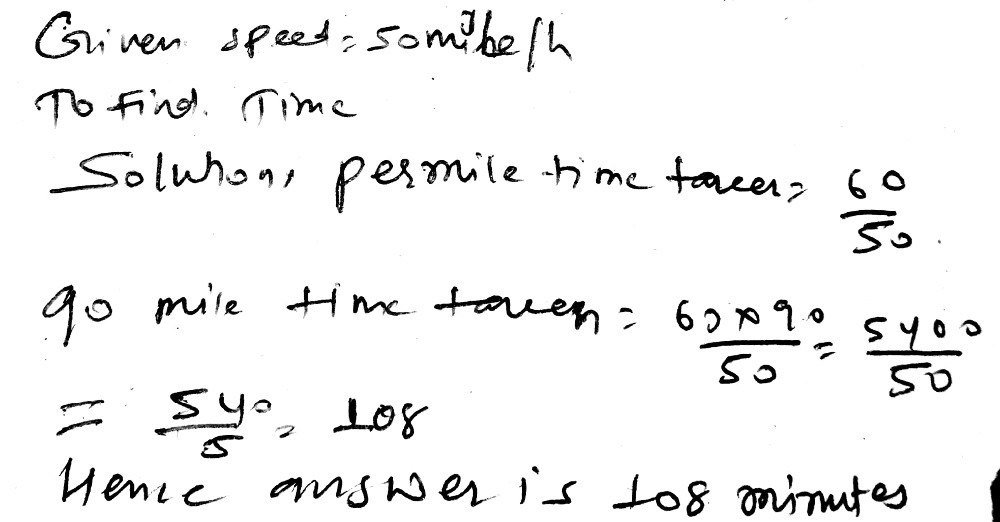 Given speed = 50 mile/h
To find. Time
Solution, per mile time taken = 60/50.
90 mile time taken = 60×90/50 = 5400/50
= 540/5 = 108
Hence answer is 108 minutes